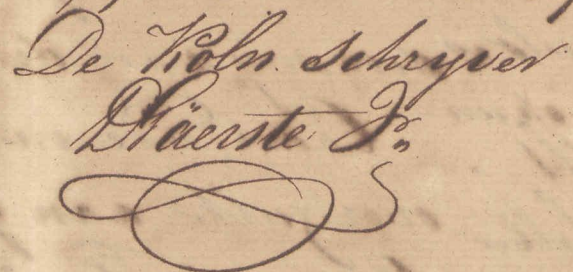 De Koln. schryver
Stäerste Jr.